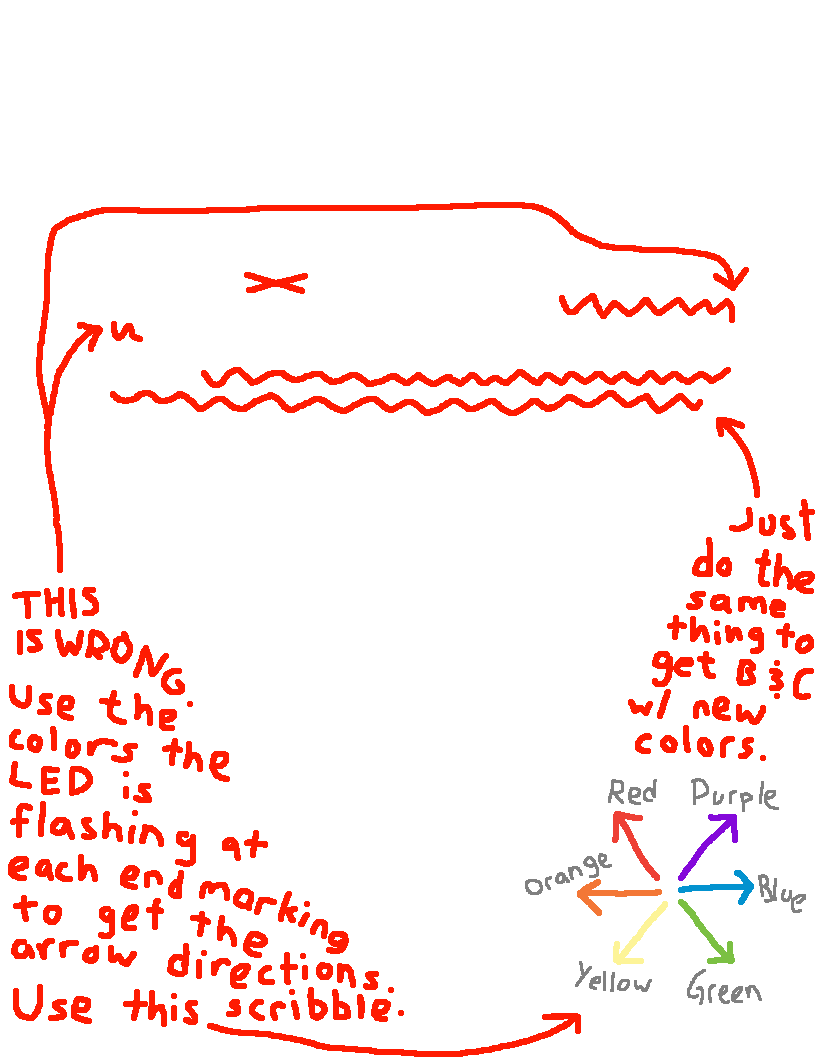 THIS
IS WRONG.
Use the
colors the
LED is
flashing at
each end marking
to get the
arrow directions.
Use this scribble.
Just
do the
same
thing to
get B & C
w/ new
colors.
Red Purple
Orange
Blue
Yellow Green